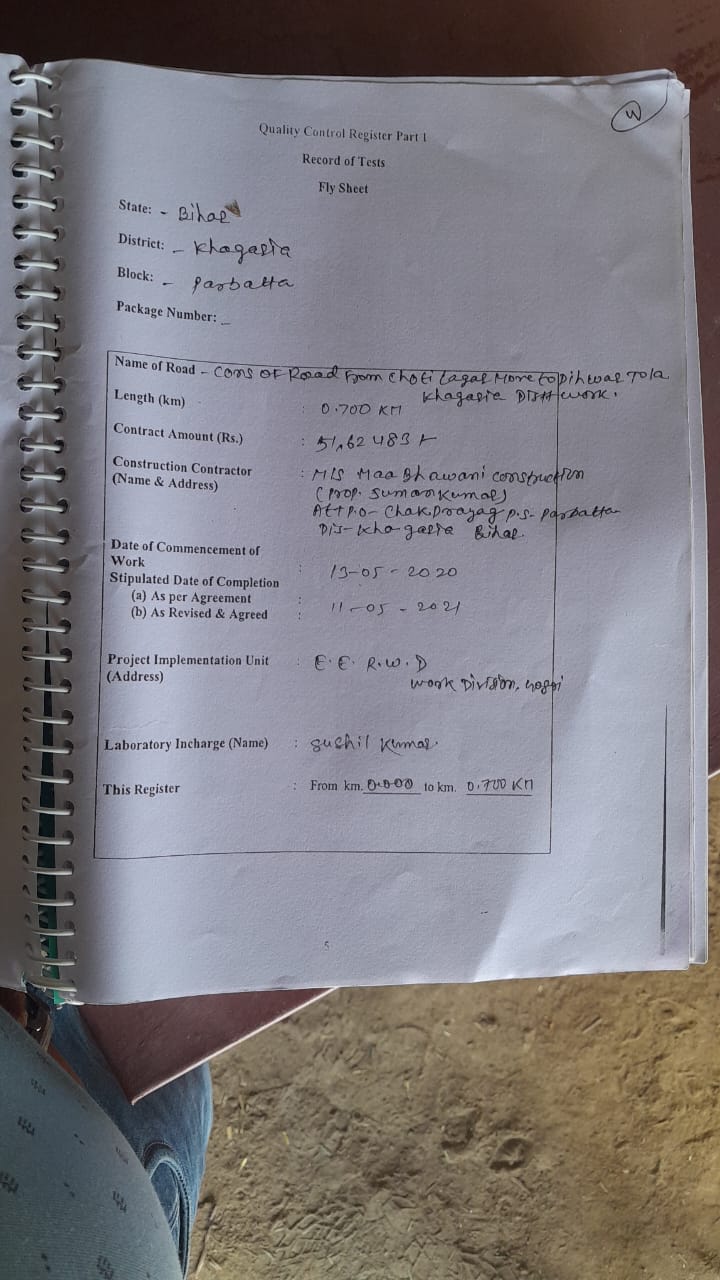 W
Quality Control Register Part I
Record of Tests
Fly Sheet
State: - Bihar
District: - Khagaria
Block: - Parbatta
Package Number: -
Name of Road - Cons of Road from Choti Lagar More to Dihwar Tola
Khagaria Distt work.
Length (km) : 0.700 KM
Contract Amount (Rs.) : 51,62 483/-
Construction Contractor : M/S Maa Bhawani construction
(Name & Address) (Prop. Suman Kumar)
At+P.O- Chak Prayag P.S- Parbatta
Dis- Khagaria Bihar.
Date of Commencement of
Work : 13-05-2020
Stipulated Date of Completion
(a) As per Agreement : 11-05-2021
(b) As Revised & Agreed :
Project Implementation Unit : E.E. R.W.D
(Address) Work Division, Gogri
Laboratory Incharge (Name) : Sushil Kumar.
This Register : From km. 0.000 to km. 0.700 KM
5